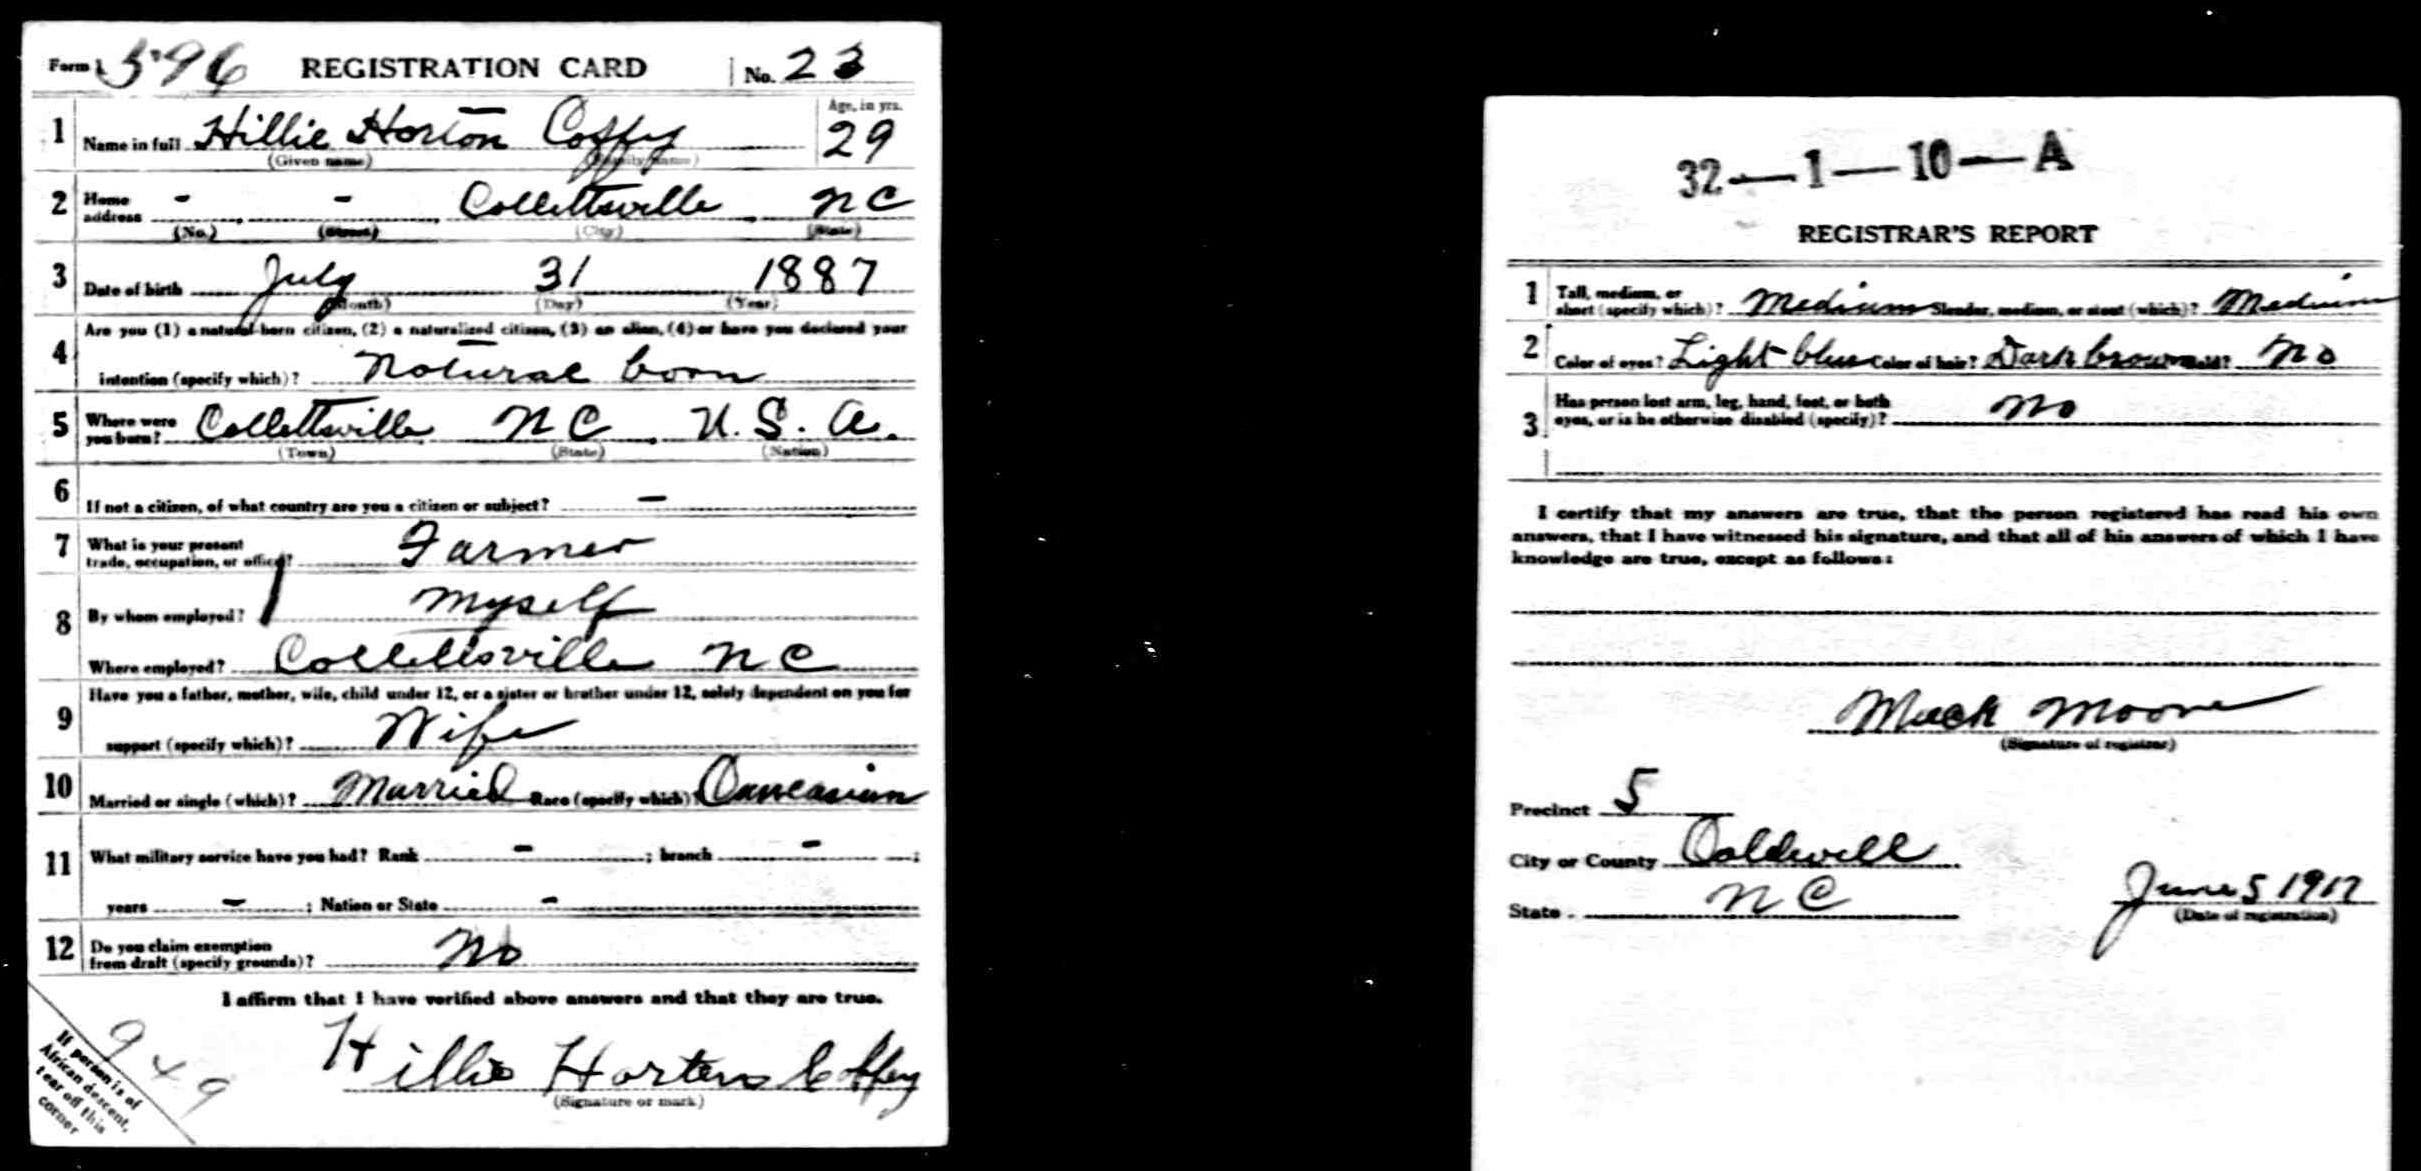 Form 1 596 REGISTRATION CARD No. 23
1 Name in full Hillie Horton Coffey Age, in yrs. 29
(Given name) (Family name)
2 Home address - - Collettsville NC
(No.) (Street) (City) (State)
3 Date of birth July 31 1887
(Month) (Day) (Year)
4 Are you (1) a natural-born citizen, (2) a naturalized citizen, (3) an alien, (4) or have you declared your
intention (specify which)? Natural born
5 Where were you born? Collettsville NC U.S.A.
(Town) (State) (Nation)
6 If not a citizen, of what country are you a citizen or subject? -
7 What is your present
trade, occupation, or office? Farmer
8 By whom employed? Myself
Where employed? Collettsville NC
9 Have you a father, mother, wife, child under 12, or a sister or brother under 12, solely dependent on you for
support (specify which)? Wife
10 Married or single (which)? Married Race (specify which)? Caucasian
11 What military service have you had? Rank - ; branch - ;
years - ; Nation or State -
12 Do you claim exemption
from draft (specify grounds)? No
I affirm that I have verified above answers and that they are true.
Hillie Horton Coffey
(Signature or mark)
If person is of
African descent,
tear off this
corner
949
32-1-10-A
REGISTRAR'S REPORT
1 Tall, medium, or
short (specify which)? Medium Slender, medium, or stout (which)? Medium
2 Color of eyes? Light blue Color of hair? Dark brown Bald? No
3 Has person lost arm, leg, hand, foot, or both
eyes, or is he otherwise disabled (specify)? No
I certify that my answers are true, that the person registered has read his own
answers, that I have witnessed his signature, and that all of his answers of which I have
knowledge are true, except as follows:
Mack Moore
(Signature of registrar)
Precinct 5
City or County Caldwell
State NC
June 5 1917
(Date of registration)